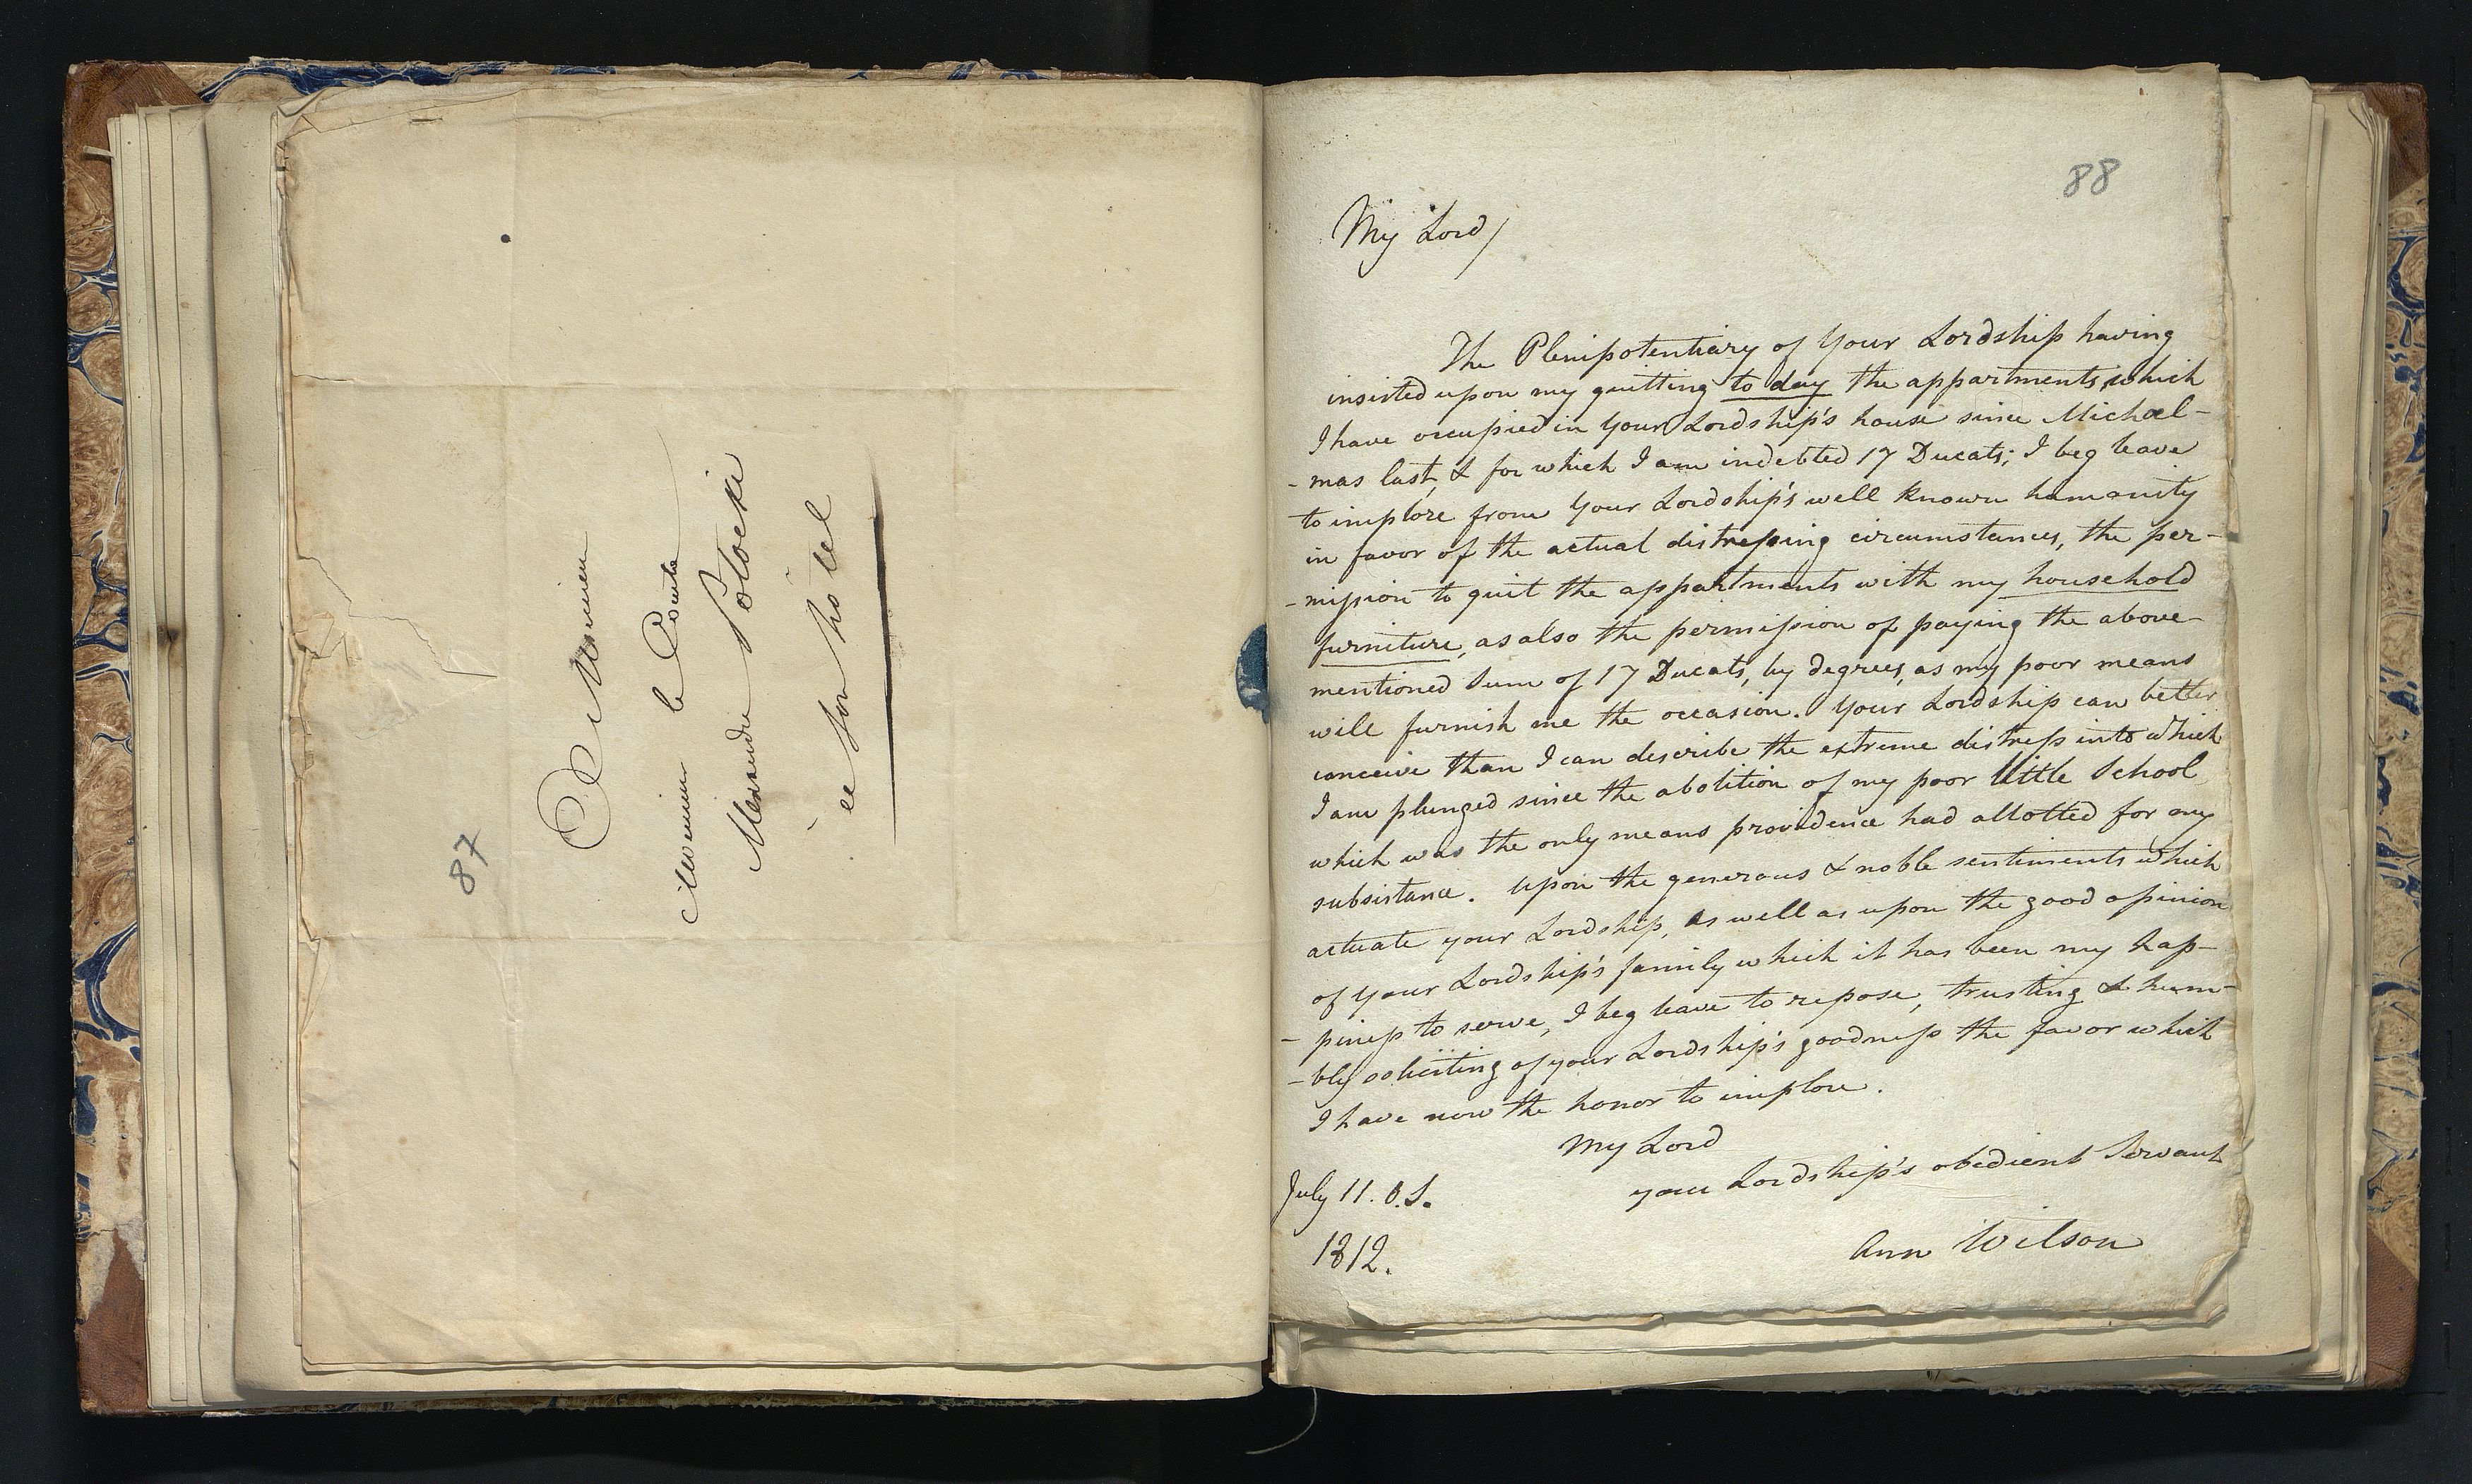 87
A Monsieur
Monsieur le Comte
Alexandre Potocki
à son hôtel
88
My Lord/
The Plenipotentiary of Your Lordship having
insisted upon my quitting to day the appartments, which
I have occupied in Your Lordship's house since Michael-
-mas last, & for which I am indebted 17 Ducats; I beg leave
to implore from Your Lordship's well known humanity
in favor of the actual distressing circumstances, the per-
-mission to quit the appartments with my household
furniture, as also the permission of paying the above-
mentioned Sum of 17 Ducats, by degrees, as my poor means
will furnish me the occasion. Your Lordship can better
conceive than I can describe the extreme distress into which
I am plunged since the abolition of my poor little School
which was the only means providence had allotted for my
subsistance. Upon the generous & noble sentiments which
actuate your Lordship, as well as upon the good opinion
of your Lordship's family which it has been my hap-
-piness to serve, I beg leave to repose, trusting & hum-
-bly soliciting of your Lordship's goodness the favor which
I have now the honor to implore.
My Lord
your Lordship's obedient Servant
July 11. O.S.
1812.
Ann Wilson